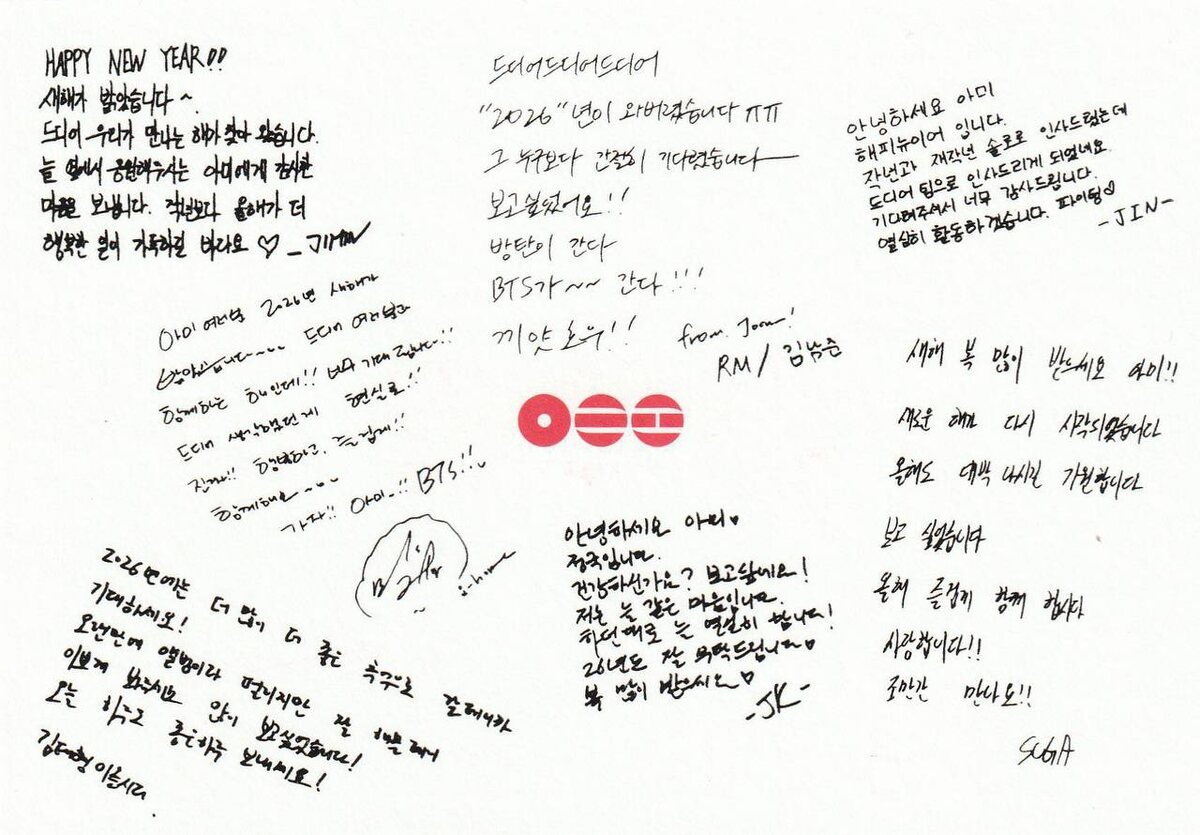 HAPPY NEW YEAR!!
새해가 밝았습니다~
드디어 우리가 만나는 해가 찾아 왔습니다.
늘 옆에서 응원해주시는 아미에게 감사한
마음을 보냅니다. 작년보다 올해가 더
행복한 일이 가득하길 바라요 ♡ _JIMIN
드디어드디어드디어
"2026"년이 와버렸습니다 ㅠㅠ
그 누구보다 간절히 기다렸습니다
보고싶었어요!!
방탄이 간다
BTS가~~ 간다!!!
끼얏호우!!
from. Joon!
RM / 김남준
안녕하세요 아미
해피뉴이어 입니다.
작년과 재작년 솔로로 인사드렸는데
드디어 팀으로 인사드리게 되었네요.
기다려주셔서 너무 감사드립니다.
열심히 활동하겠습니다. 파이팅♡
-JIN-
아미 여러분 2026년 새해가
밝았습니다~~~ 드디어 여러분과
함께하는 해인데!! 너무 기대 됩니다!!
드디어 생각했던게 현실로!!
진짜!! 행복하고, 즐겁게!!
함께해요~~~
가자!! 아미_!! BTS!!
j-hope
새해 복 많이 받으세요 아미!!
새로운 해가 다시 시작되었습니다
올해도 대박 나시길 기원합니다
보고 싶었습니다
올해 즐겁게 함께 합시다
사랑합니다!!
조만간 만나요!!
SUGA
2026년에는 더 많이 더 좋은 추억으로 갈테니까
기대하세요!
오랜만에 앨범이라 떨리지만 잘 해볼테니
이쁘게 봐주시요 많이 보고싶었습니다!
오늘 하루도 좋은하루 보내세요!
김태형이올시다.
안녕하세요 아미♥
정국입니다.
건강하신가요? 보고싶네요!
저는 늘 같은 마음입니다.
하던대로 늘 열심히 합니다!
26년도 잘 부탁드립니다♥
복 많이 받으세요♥
-JK-